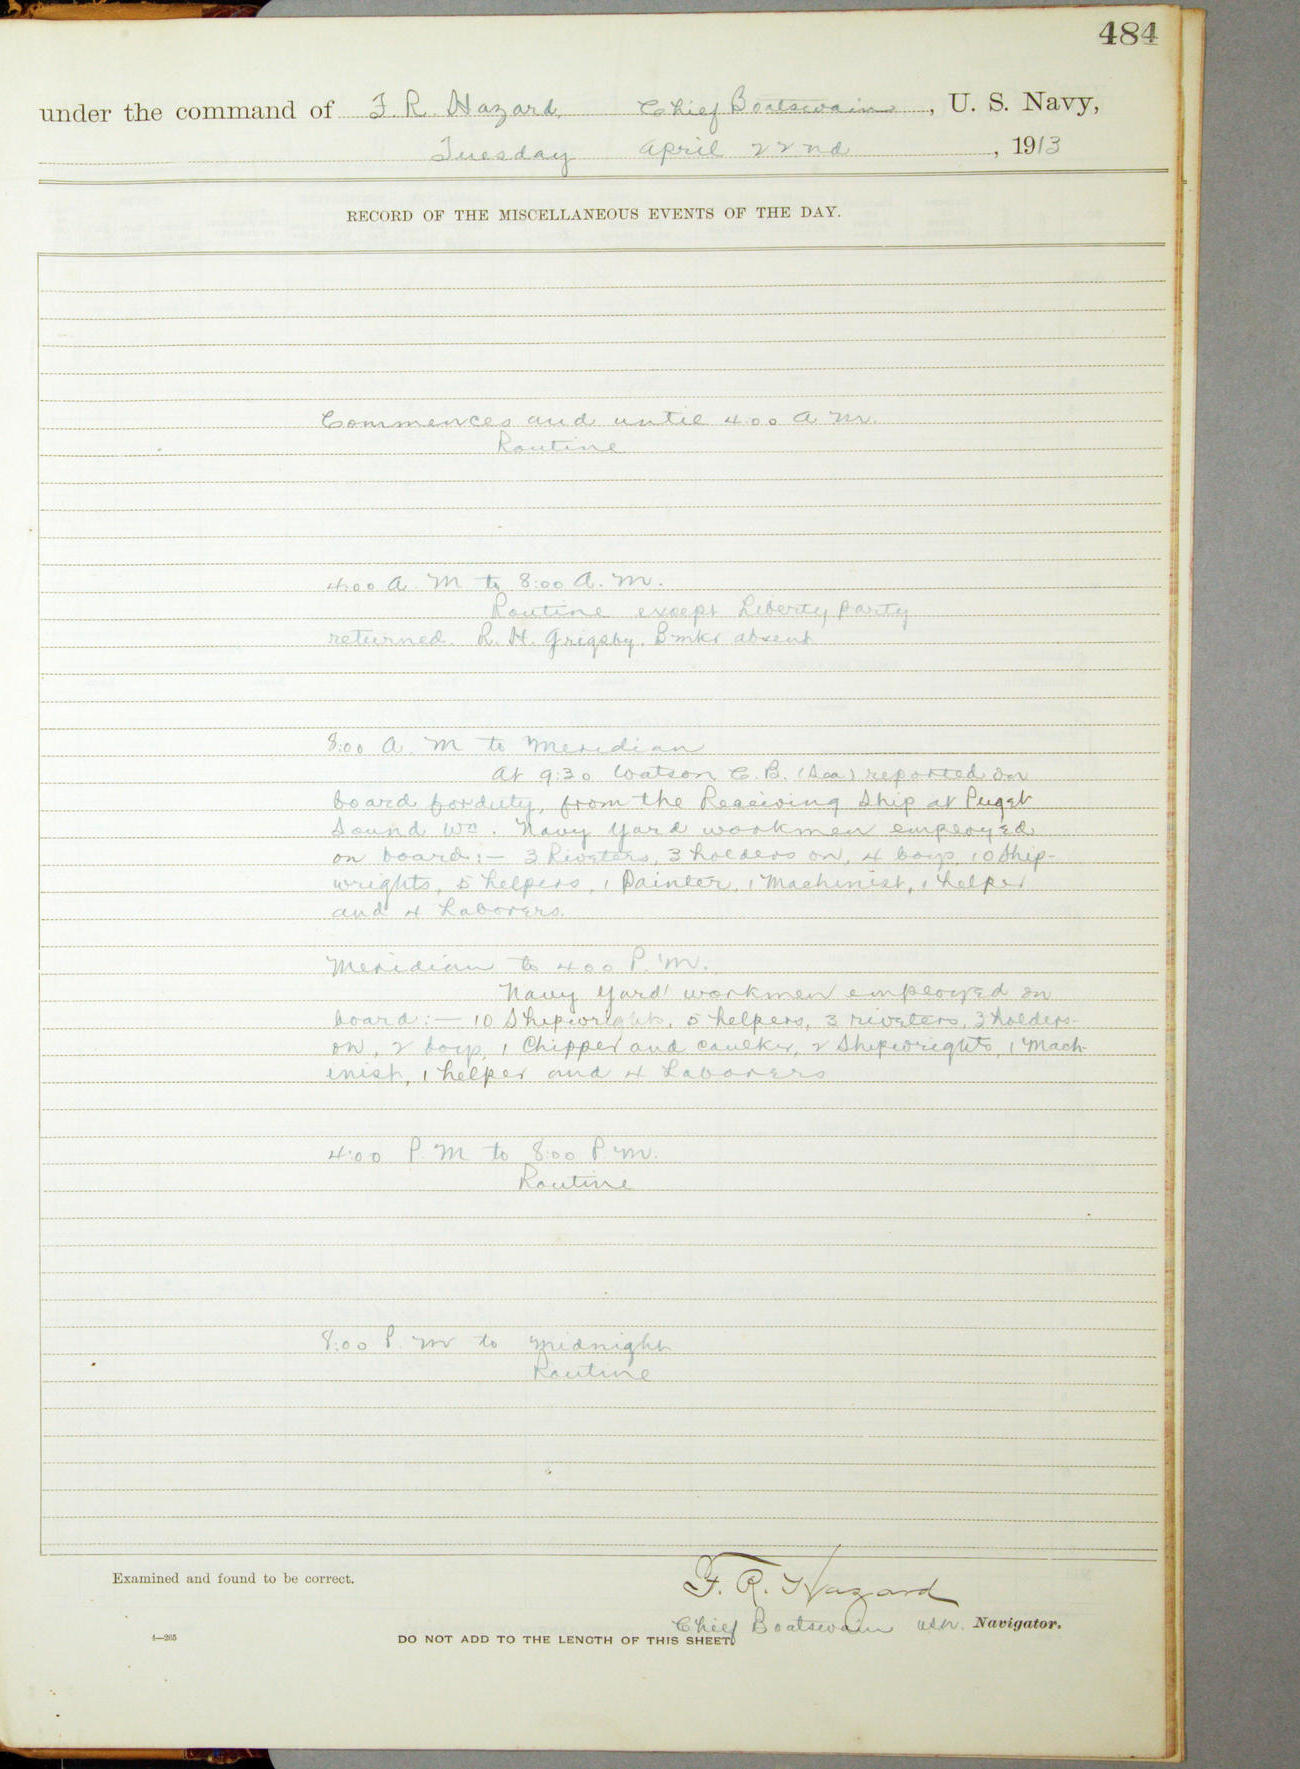 484
under the command of F. R. Hazard, Chief Boatswain, U. S. Navy,
Tuesday April 22nd, 1913
RECORD OF THE MISCELLANEOUS EVENTS OF THE DAY.
Commences and until 4:00 A. M.
Routine
4:00 A. M to 8:00 A. M.
Routine except Liberty party
returned. R. H. Grigsby, Bmkr absent
8:00 A. M to Meridian
At 9:30 Watson C. B. (Sea) reported on
board for duty, from the Receiving Ship at Puget
Sound Wn. Navy Yard workmen employed
on board:— 3 Riveters, 3 holders on, 4 boys, 10 Ship-
wrights, 5 helpers, 1 Painter, 1 Machinist, 1 helper
and 4 Laborers.
Meridian to 4:00 P. M.
Navy Yard workmen employed on
board:— 10 Shipwrights, 5 helpers, 3 riveters, 3 holders-
on, 2 boys, 1 Chipper and caulker, 2 Shipwrights, 1 Mach-
inist, 1 helper and 4 Laborers
4:00 P. M to 8:00 P. M.
Routine
8:00 P. M to Midnight
Routine
Examined and found to be correct.
F. R. Hazard
Chief Boatswain USN. Navigator.
4—265
DO NOT ADD TO THE LENGTH OF THIS SHEET.